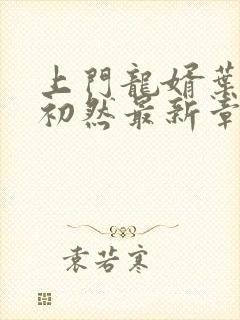 上門龍婿葉
初然最新章
袁若寒